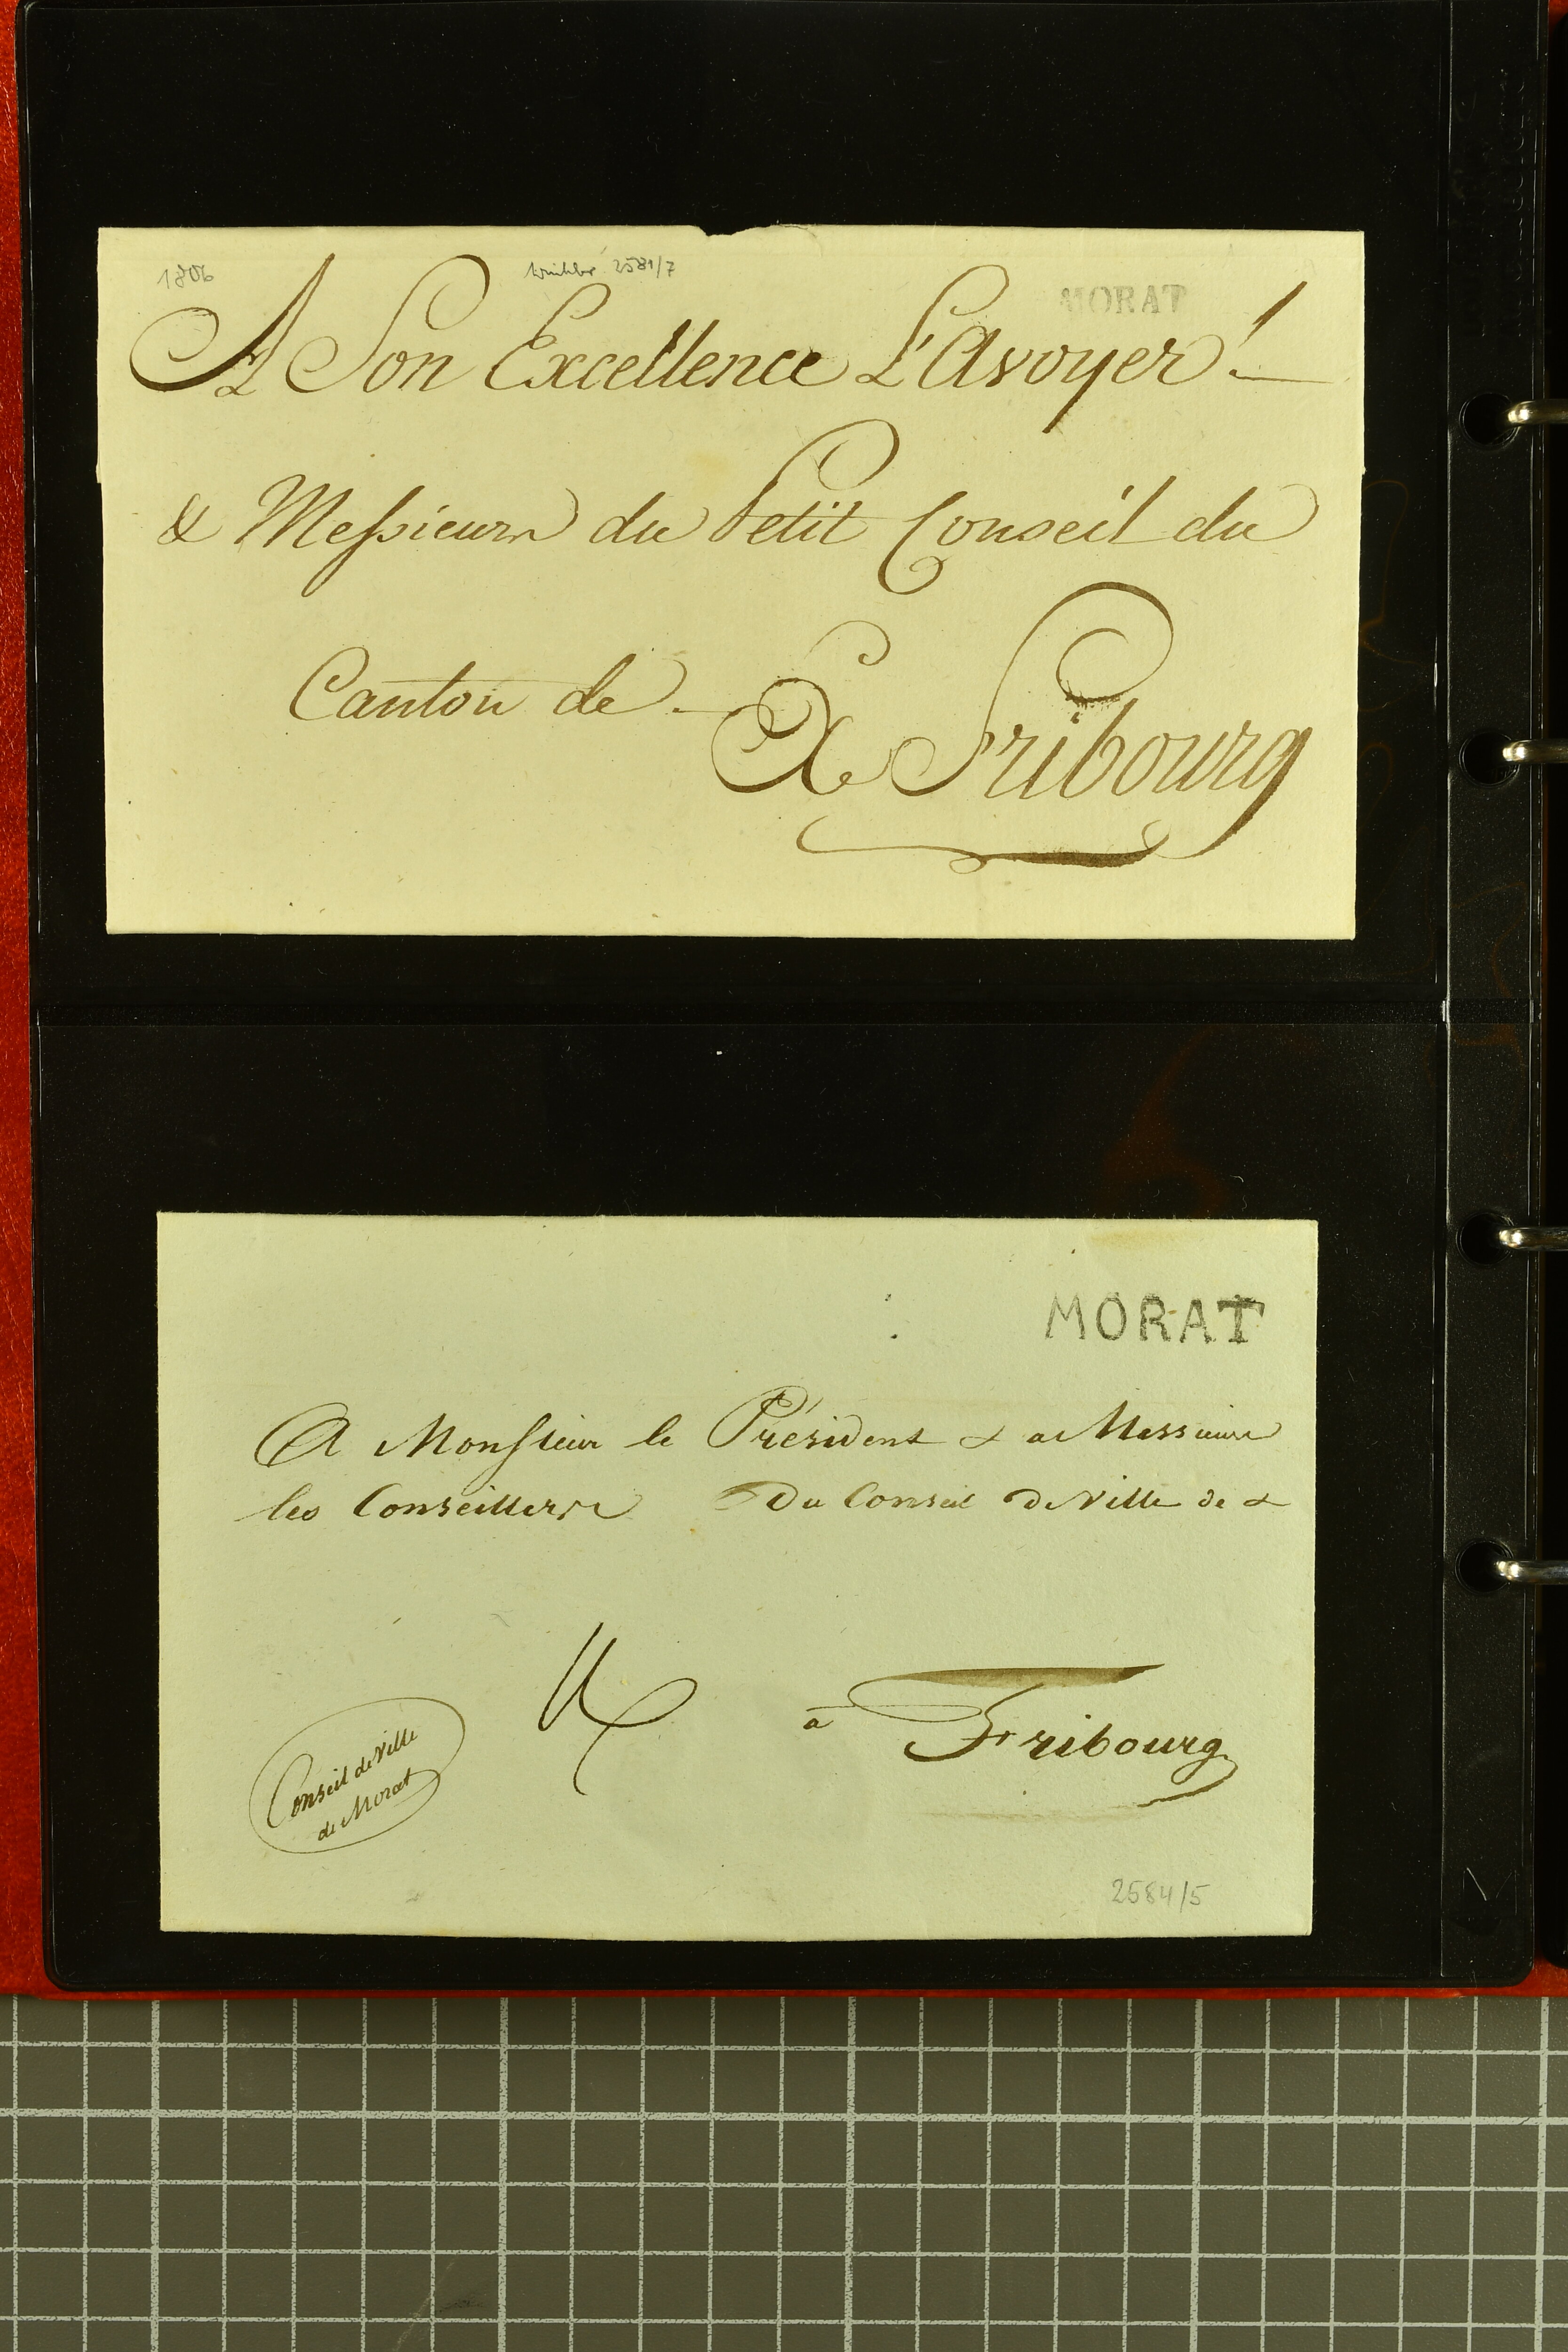 1806
Winkler 2581/7
MORAT
A Son Excellence L'Avoyer!
& Messieurs du Petit Conseil du
Canton de
A Fribourg
MORAT
A Monsieur le Président & a Messieurs
les Conseillers Du Conseil de Ville de &
à Fribourg
Conseil de Ville
de Morat
2584/5